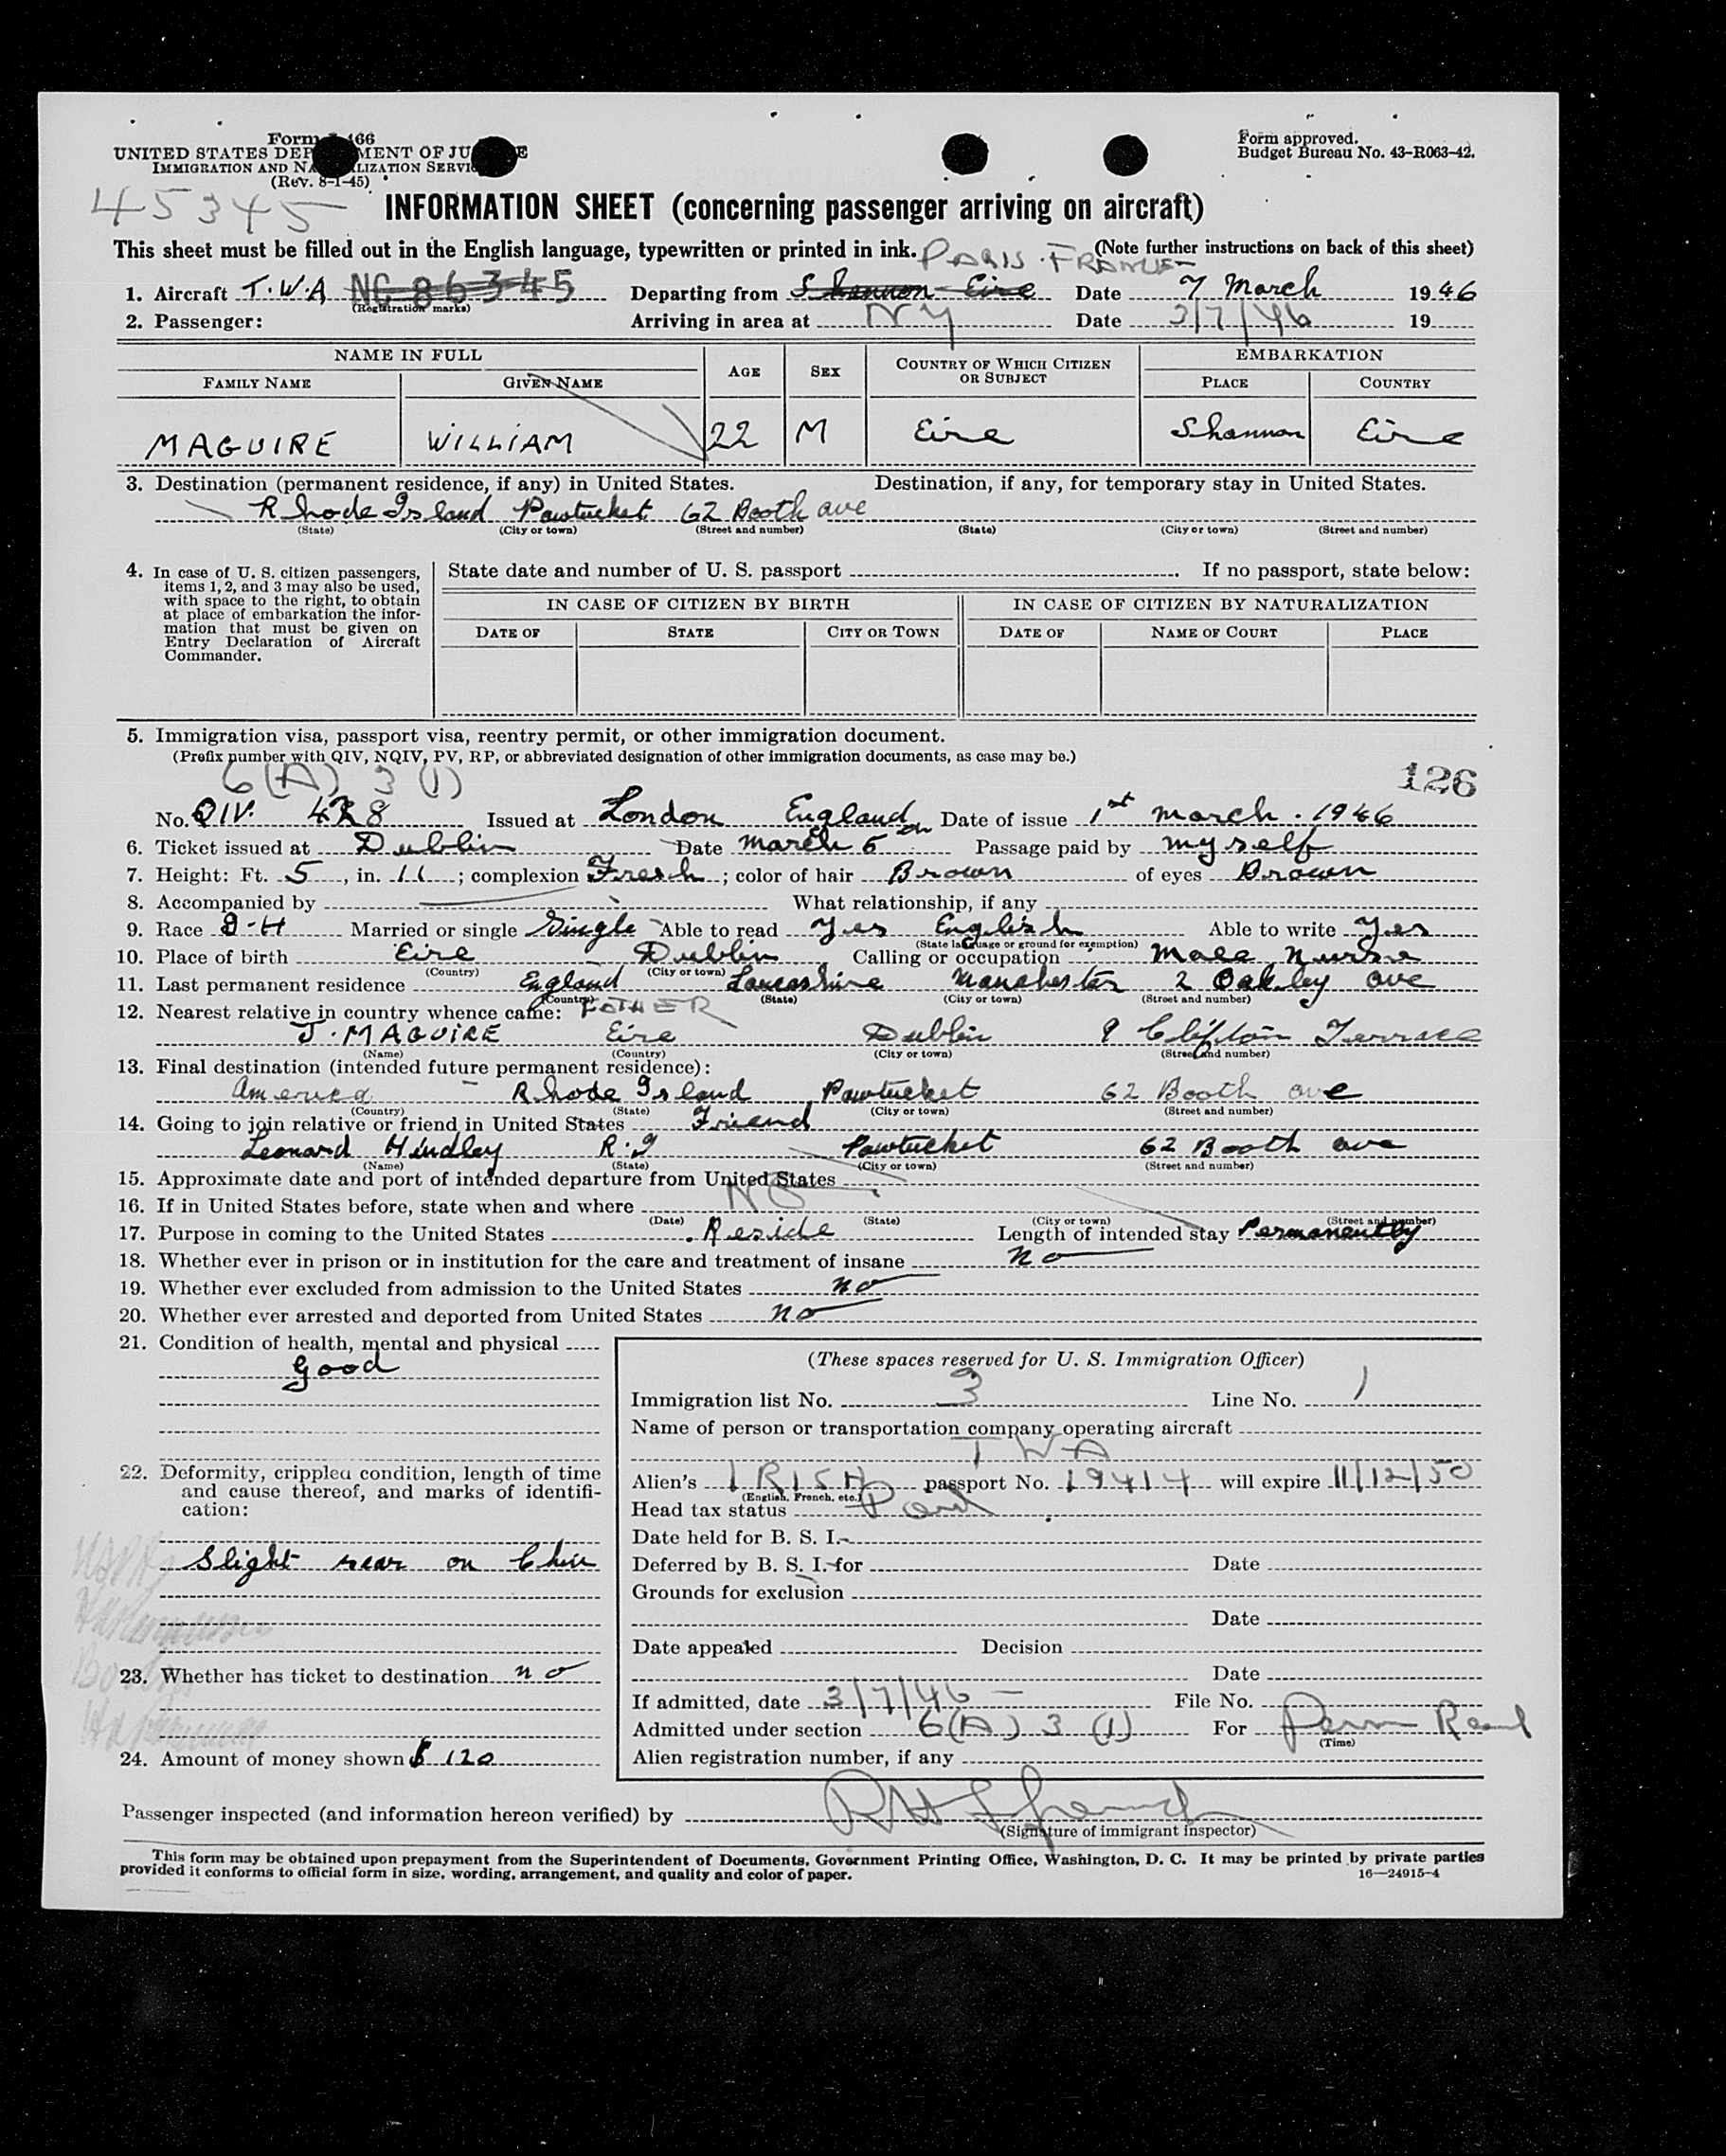 Form 466
UNITED STATES DEPARTMENT OF JUSTICE
IMMIGRATION AND NATURALIZATION SERVICE
(Rev. 8-1-45)
Form approved.
Budget Bureau No. 43-R063-42.
45345
INFORMATION SHEET (concerning passenger arriving on aircraft)
This sheet must be filled out in the English language, typewritten or printed in ink. (Note further instructions on back of this sheet)
PARIS. FRANCE
1. Aircraft T.W.A NC 86345 Departing from Shannon Eire Date 7 March 1946
(Registration marks)
2. Passenger: Arriving in area at NY Date 3/7/46 19
NAME IN FULL AGE SEX COUNTRY OF WHICH CITIZEN OR SUBJECT EMBARKATION
FAMILY NAME GIVEN NAME PLACE COUNTRY
MAGUIRE WILLIAM 22 M Eire Shannon Eire
3. Destination (permanent residence, if any) in United States. Destination, if any, for temporary stay in United States.
Rhode Island Pawtucket 62 Booth ave
(State) (City or town) (Street and number) (State) (City or town) (Street and number)
4. In case of U. S. citizen passengers, items 1, 2, and 3 may also be used, with space to the right, to obtain at place of embarkation the information that must be given on Entry Declaration of Aircraft Commander.
State date and number of U. S. passport . If no passport, state below:
IN CASE OF CITIZEN BY BIRTH IN CASE OF CITIZEN BY NATURALIZATION
DATE OF STATE CITY OR TOWN DATE OF NAME OF COURT PLACE
5. Immigration visa, passport visa, reentry permit, or other immigration document.
(Prefix number with QIV, NQIV, PV, RP, or abbreviated designation of other immigration documents, as case may be.)
6(A) 3 (1)
126
No. QIV. 428 Issued at London England Date of issue 1st March. 1946
6. Ticket issued at Dublin Date March 5 Passage paid by myself
7. Height: Ft. 5, in. 11; complexion Fresh; color of hair Brown of eyes Brown
8. Accompanied by What relationship, if any
9. Race Married or single Single Able to read Yes English Able to write Yes
(State language or ground for exemption)
10. Place of birth Eire Dublin Calling or occupation Male Nurse
(Country) (City or town)
11. Last permanent residence England Lancashire Manchester 2 Oakley ave
(Country) (State) (City or town) (Street and number)
12. Nearest relative in country whence came: FATHER
J. MAGUIRE Eire Dublin 9 Clifton Terrace
(Name) (Country) (City or town) (Street and number)
13. Final destination (intended future permanent residence):
America - Rhode Island Pawtucket 62 Booth ave
(Country) (State) (City or town) (Street and number)
14. Going to join relative or friend in United States Friend
Leonard Hindley R.I Pawtucket 62 Booth ave
(Name) (State) (City or town) (Street and number)
15. Approximate date and port of intended departure from United States
16. If in United States before, state when and where NO
(Date) (State) (City or town) (Street and number)
17. Purpose in coming to the United States Reside Length of intended stay Permanently
18. Whether ever in prison or in institution for the care and treatment of insane no
19. Whether ever excluded from admission to the United States no
20. Whether ever arrested and deported from United States no
21. Condition of health, mental and physical
Good
(These spaces reserved for U. S. Immigration Officer)
Immigration list No. 3 Line No. 1
Name of person or transportation company operating aircraft
TWA
22. Deformity, crippled condition, length of time and cause thereof, and marks of identification:
Slight scar on Chin
Alien's IRISH passport No. 19414 will expire 11/12/50
(English, French, etc.)
Head tax status Paid
Date held for B. S. I.
Deferred by B. S. I. for Date
Grounds for exclusion
Date
Date appealed Decision
23. Whether has ticket to destination no
Date
If admitted, date 3/7/46 File No.
Admitted under section 6(A) 3 (1) For Perm Resd
(Time)
24. Amount of money shown $ 120
Alien registration number, if any
Passenger inspected (and information hereon verified) by
(Signature of immigrant inspector)
This form may be obtained upon prepayment from the Superintendent of Documents, Government Printing Office, Washington, D. C. It may be printed by private parties
provided it conforms to official form in size, wording, arrangement, and quality and color of paper. 16—24915-4